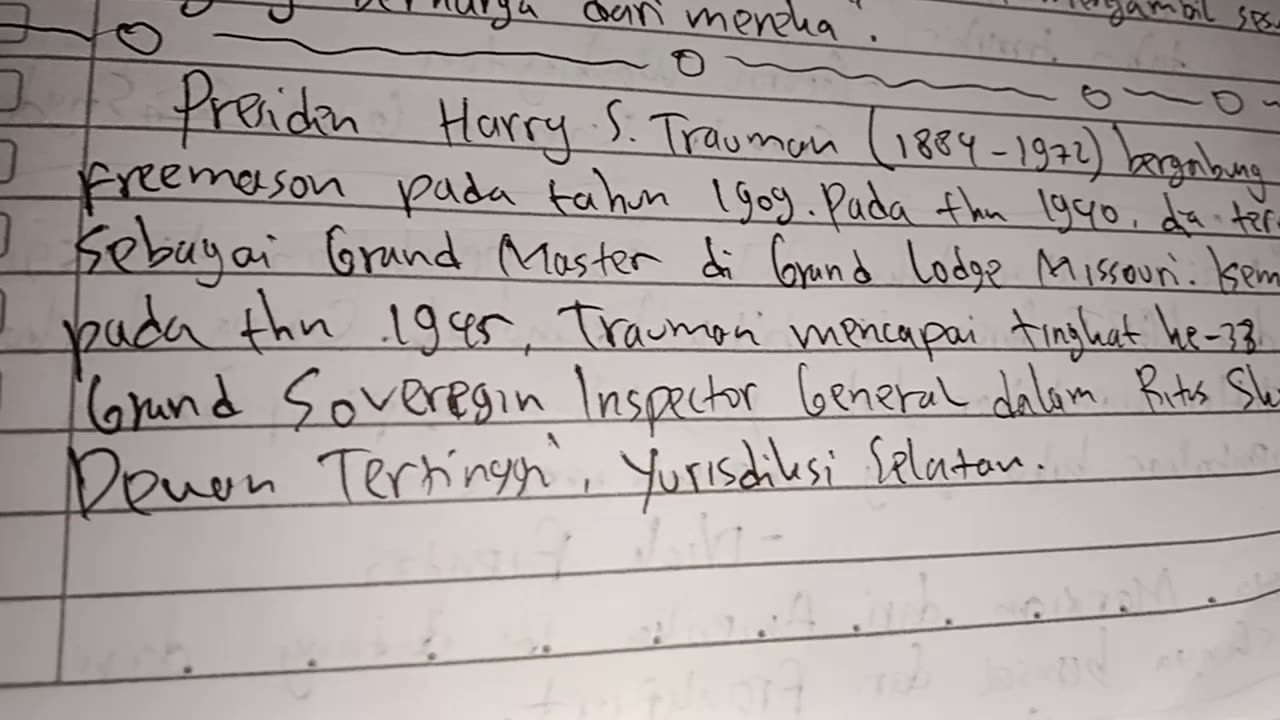 berharga dari mereka".
mengambil
Presiden Harry S. Trauman (1884-1972) bergabung
Freemason pada tahun 1909. Pada thn 1940, dia ter
sebagai Grand Master di Grand Lodge Missouri. Kem
pada thn 1945, Trauman mencapai tingkat ke-33
Grand Soveregin Inspector General dalam Ritus Sk
Dewan Tertinggi, Yurisdiksi Selatan.